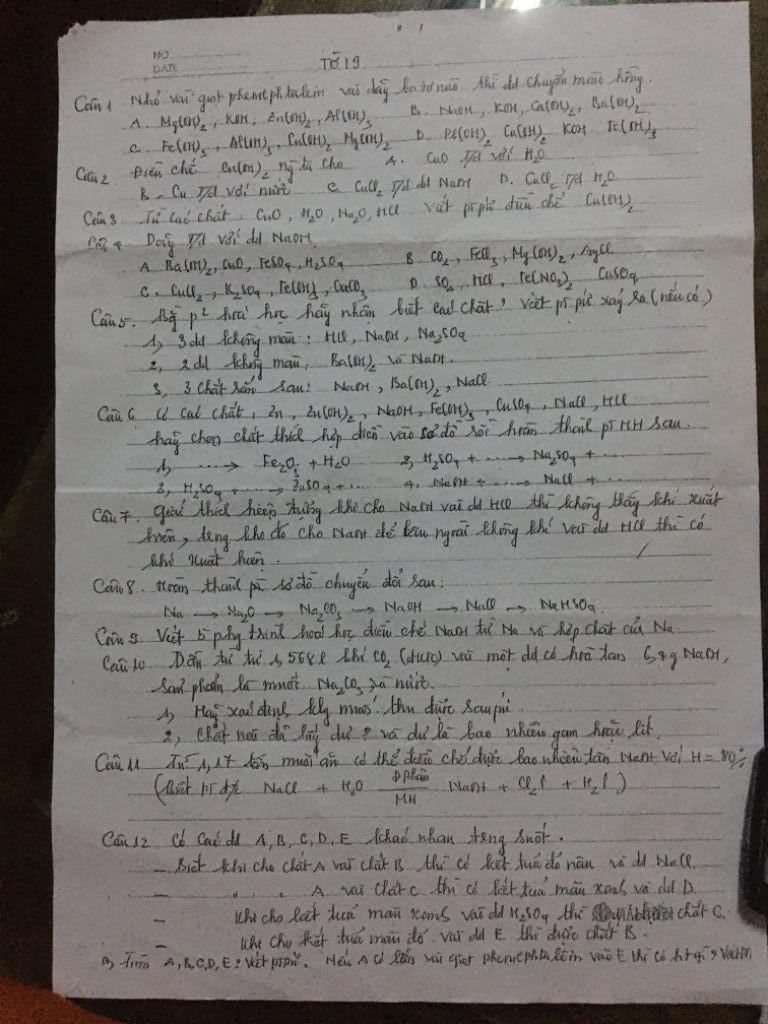 NO
DATE
TỜ 19
Câu 1 Nhỏ vài giọt phenolphtalein vào dãy bazơ nào thì dd chuyển màu hồng.
A. Mg(OH)2, KOH, Zn(OH)2, Al(OH)3 B. NaOH, KOH, Ca(OH)2, Ba(OH)2
C. Fe(OH)3, Al(OH)3, Mg(OH)2 D. Cu(OH)2 KOH Fe(OH)3
Câu 2 Điều chế Cu(OH)2 ng ta cho A. CuO T/d với H2O
B - Cu T/d với nước C. CuCl2 T/d dd NaOH D. CuCl2 T/d H2O
Câu 3 Từ các chất. CuO, H2O, Na2O, HCl viết ptpứ điều chế Cu(OH)2
Câu 4 Dãy T/d với dd NaOH.
A. Ba(OH)2, CuO, FeSO4, H2SO4 B. CO2, FeCl3, Mg(OH)2, AgCl
C. CuCl2, K2SO4, Fe(OH)3, CaCO3 D. SO2, HCl, Fe(NO3)2 CuSO4
Câu 5. Bằng p2 hoá học hãy nhận biết các chất, viết pt pứ xảy ra (nếu có)
1, 3 dd không màu: HCl, NaOH, Na2SO4
2, 2 dd không màu, Ba(OH)2 và NaOH.
3, 3 chất rắn sau: NaOH, Ba(OH)2, NaCl
Câu 6 Có các chất, Zn, Zn(OH)2, NaOH, Fe(OH)3, CuSO4, NaCl, HCl
hãy chọn chất thích hợp điền vào sơ đồ rồi hoàn thành pt HH sau.
1, ......→ Fe2O3 + H2O 2, H2SO4 + ......→ Na2SO4 + ......
3, H2SO4 + ......→ ZnSO4 + ... 4, NaOH + ......→ NaCl + ......
Câu 7. Giải thích hiện tượng khi cho NaOH vào dd HCl thì không thấy khí xuất
hiện, trong khi đó cho NaOH để lâu ngoài không khí vào dd HCl thì có
khí xuất hiện.
Câu 8. Hoàn thành pt sơ đồ chuyển đổi sau:
Na → Na2O → Na2CO3 → NaOH → NaCl → NaHSO4
Câu 9 Viết 5 phg trình hoá học điều chế NaOH từ Na và hợp chất của Na
Câu 10. Dẫn từ từ 1,568 l khí CO2 (đktc) vào một dd có hoà tan 6,4 g NaOH,
sản phẩm là muối Na2CO3 và nước.
1, Hãy xác định klg muối thu được sau pứ
2, Chất nào đã lấy dư? và dư là bao nhiêu gam hoặc lít.
Câu 11 Từ 1,17 tấn muối ăn có thể điều chế được bao nhiêu tấn NaOH với H = 80%
(Biết pt đ/c NaCl + H2O Đphân MN NaOH + Cl2↑ + H2↑)
Câu 12 Có các dd A, B, C, D, E khác nhau trong suốt.
- Biết khi cho chất A vào chất B thì có kết tủa đỏ nâu và dd NaCl.
- " " " A vào chất C thì có kết tủa màu xanh và dd D.
- Khi cho kết tủa màu xanh vào dd H2SO4 thì chất C.
- Khi cho kết tủa màu đỏ vào dd E thì được chất B.
a, Tìm A, B, C, D, E? Viết ptpứ. Nếu A có lẫn vài giọt phenolphtalein vào E thì có ht gì?